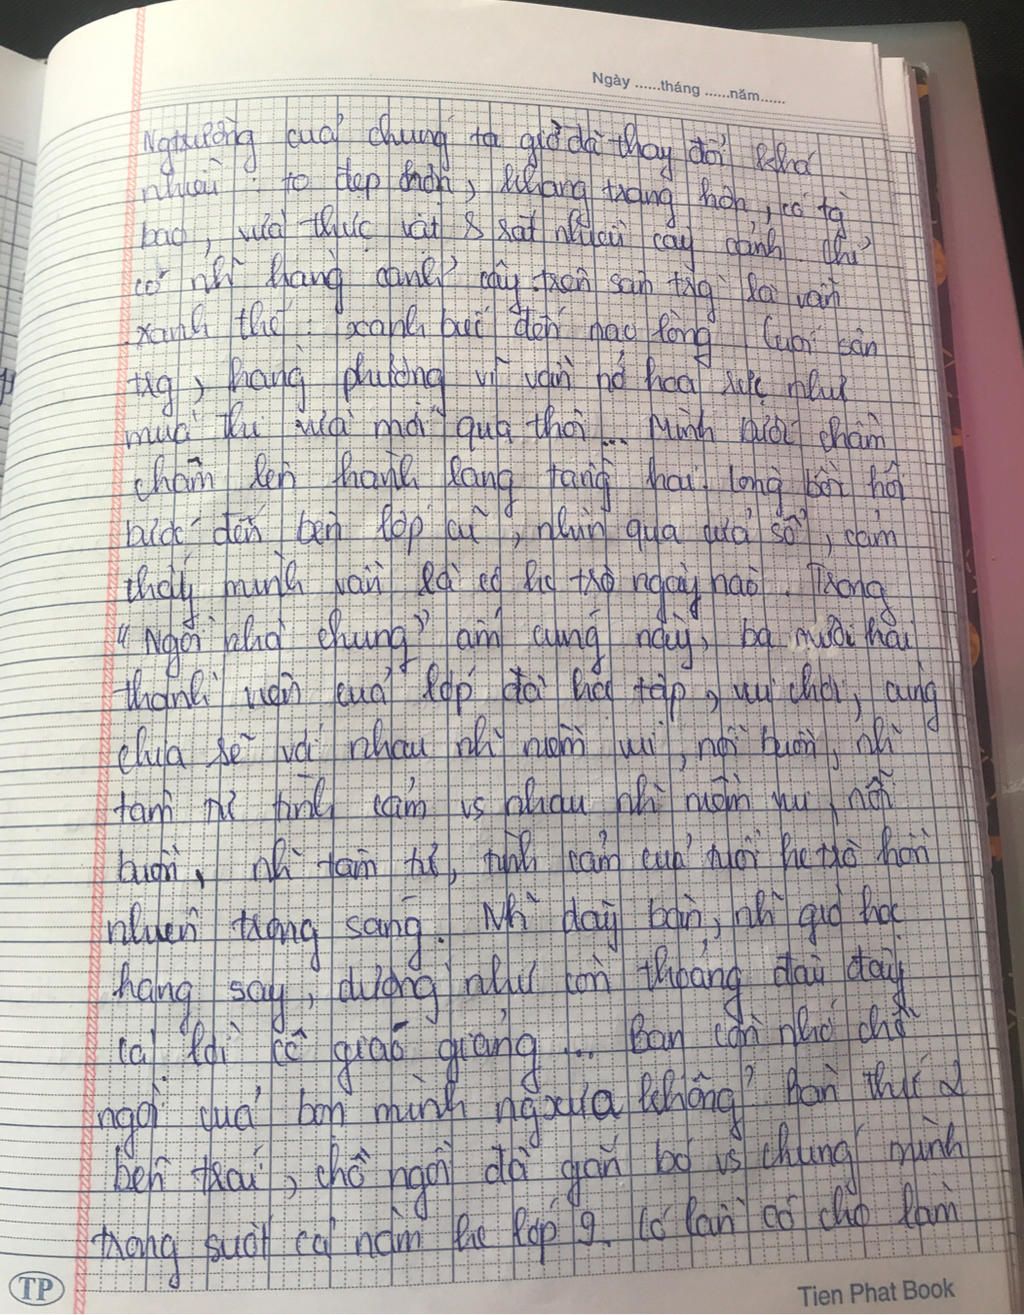 Ngày ......tháng ......năm......
Ngtrường của chúng ta giờ đã thay đổi khá
nhiều : to đẹp hơn, khang trang hơn, có tg
bao, vườn thực vật & rất nhiều cây cảnh. Chỉ
có nh~ hàng cây trên sân trg là vẫn
xanh thế : xanh biếc đến nao lòng. Cuối sân
trg, hàng phượng vĩ vẫn nở hoa rực như
mùa thi vừa mới qua thôi... Mình bước chầm
chậm lên hành lang tầng hai. Lòng bồi hồi
bước đến bên lớp cũ, nhìn qua cửa sổ, cảm
thấy mình vẫn là cô hc trò ngày nào. Trong
"Ngôi nhà chung" ấm cúng này, ba mươi hai
thành viên của lớp đã học tập, vui chơi, cùng
chia sẻ với nhau nh~ niềm vui, nỗi buồn, nh~
tâm tư tình cảm vs nhau nh~ niềm vui, nỗi
buồn, nh~ tâm tư, tình cảm của tuổi hc trò hồn
nhiên trong sáng. Nh~ dãy bàn, nh~ giờ học
hăng say, dường như còn thoảng đâu đây
cả lời cô giáo giảng... Bạn còn nhớ chỗ
ngồi của bọn mình ngxưa không? Bàn thứ 2
bên trái, chỗ ngồi đã gắn bó vs chúng mình
trong suốt cả năm hc lớp 9. Có lần cô cho làm
TP
Tien Phat Book